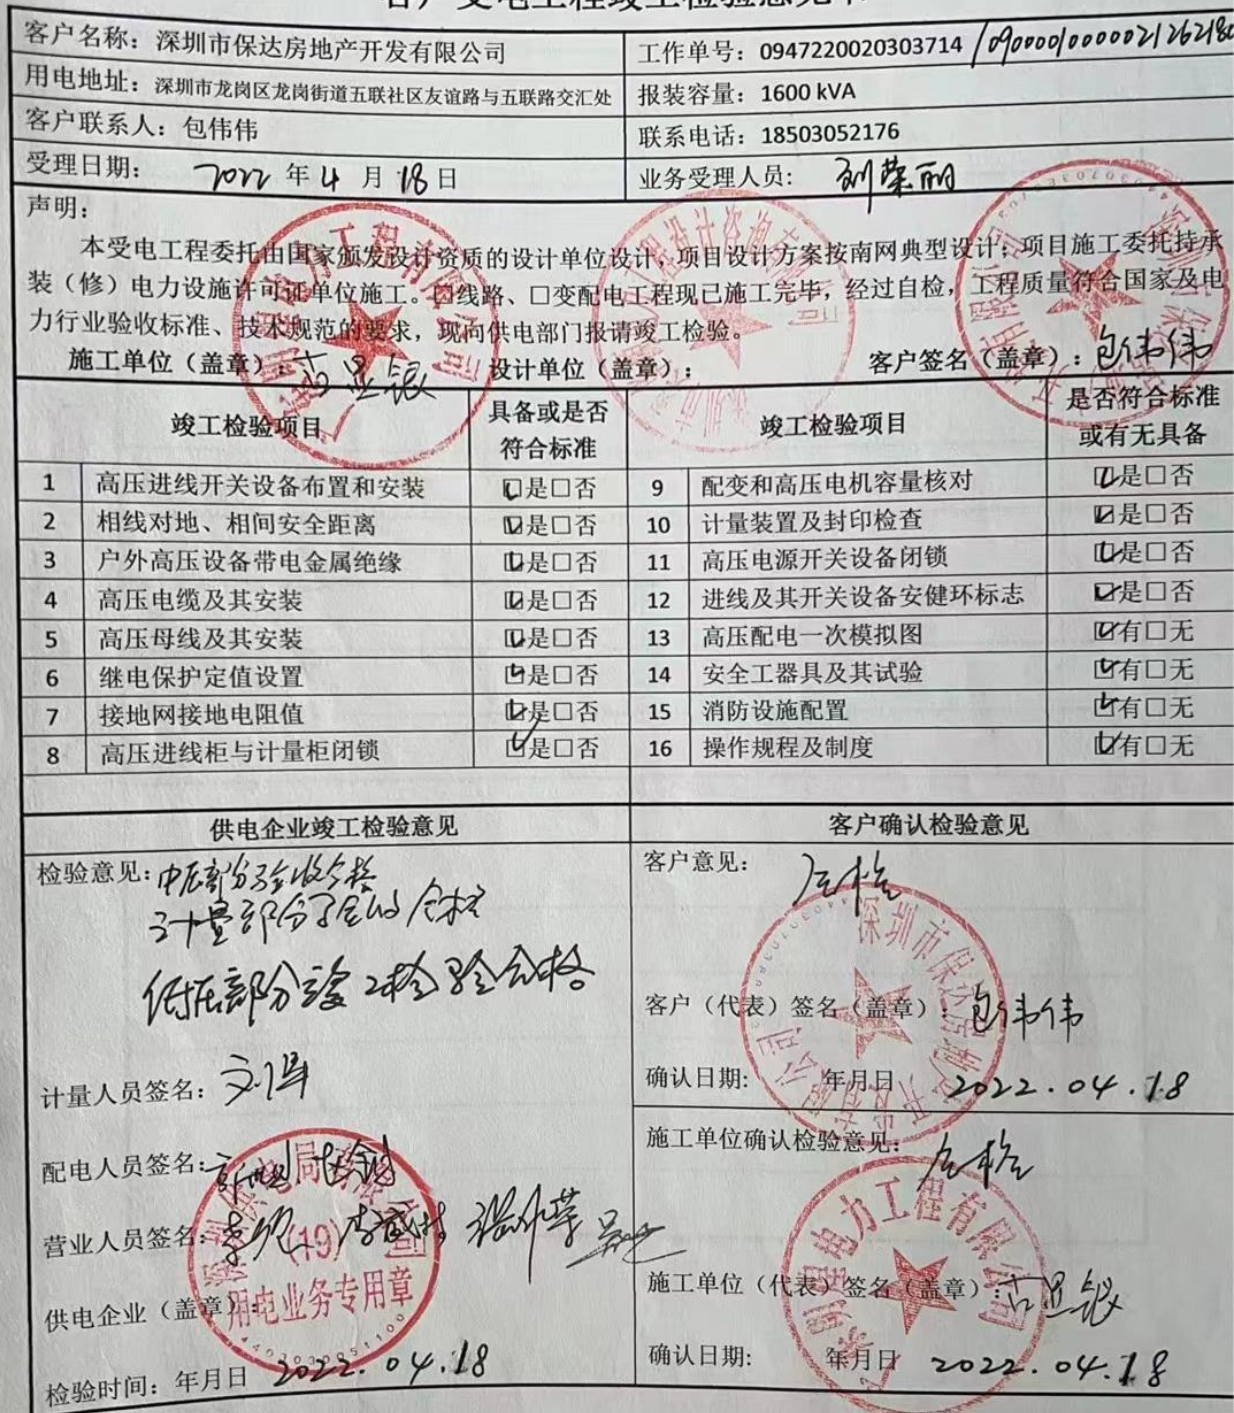 客户受电工程竣工检验意见书
客户名称：深圳市保达房地产开发有限公司
工作单号：0947220020303714 /0900001000002126218
用电地址：深圳市龙岗区龙岗街道五联社区友谊路与五联路交汇处
报装容量：1600 kVA
客户联系人：包伟伟
联系电话：18503052176
受理日期：2022 年 4 月 18 日
业务受理人员：刘荣丽
声明：
本受电工程委托由国家颁发设计资质的设计单位设计，项目设计方案按南网典型设计；项目施工委托持承
装（修）电力设施许可证单位施工。□线路、□变配电工程现已施工完毕，经过自检，工程质量符合国家及电
力行业验收标准、技术规范的要求，现向供电部门报请竣工检验。
施工单位（盖章）：古显银 设计单位（盖章）： 客户签名（盖章）：包伟伟
竣工检验项目 具备或是否符合标准 竣工检验项目 是否符合标准或有无具备
1 高压进线开关设备布置和安装 ☑是□否 9 配变和高压电机容量核对 ☑是□否
2 相线对地、相间安全距离 ☑是□否 10 计量装置及封印检查 ☑是□否
3 户外高压设备带电金属绝缘 ☑是□否 11 高压电源开关设备闭锁 ☑是□否
4 高压电缆及其安装 ☑是□否 12 进线及其开关设备安健环标志 ☑是□否
5 高压母线及其安装 ☑是□否 13 高压配电一次模拟图 ☑有□无
6 继电保护定值设置 ☑是□否 14 安全工器具及其试验 ☑有□无
7 接地网接地电阻值 ☑是□否 15 消防设施配置 ☑有□无
8 高压进线柜与计量柜闭锁 ☑是□否 16 操作规程及制度 ☑有□无
供电企业竣工检验意见
检验意见：中压部分验收合格
计量部分验收合格
低压部分竣工检验合格
计量人员签名：
配电人员签名：
营业人员签名：
供电企业（盖章）：
深圳供电局有限公司
(19)
用电业务专用章
检验时间：年月日 2022.04.18
客户确认检验意见
客户意见：合格
客户（代表）签名（盖章）：包伟伟
深圳市保达房地产开发有限公司
确认日期： 年月日 2022.04.18
施工单位确认检验意见：合格
施工单位（代表）签名（盖章）：古显银
确认日期： 年月日 2022.04.18